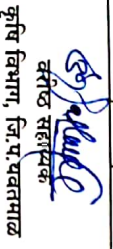 वरिष्ठ सहाय्यक
कृषि विभाग, जि.प.यवतमाळ